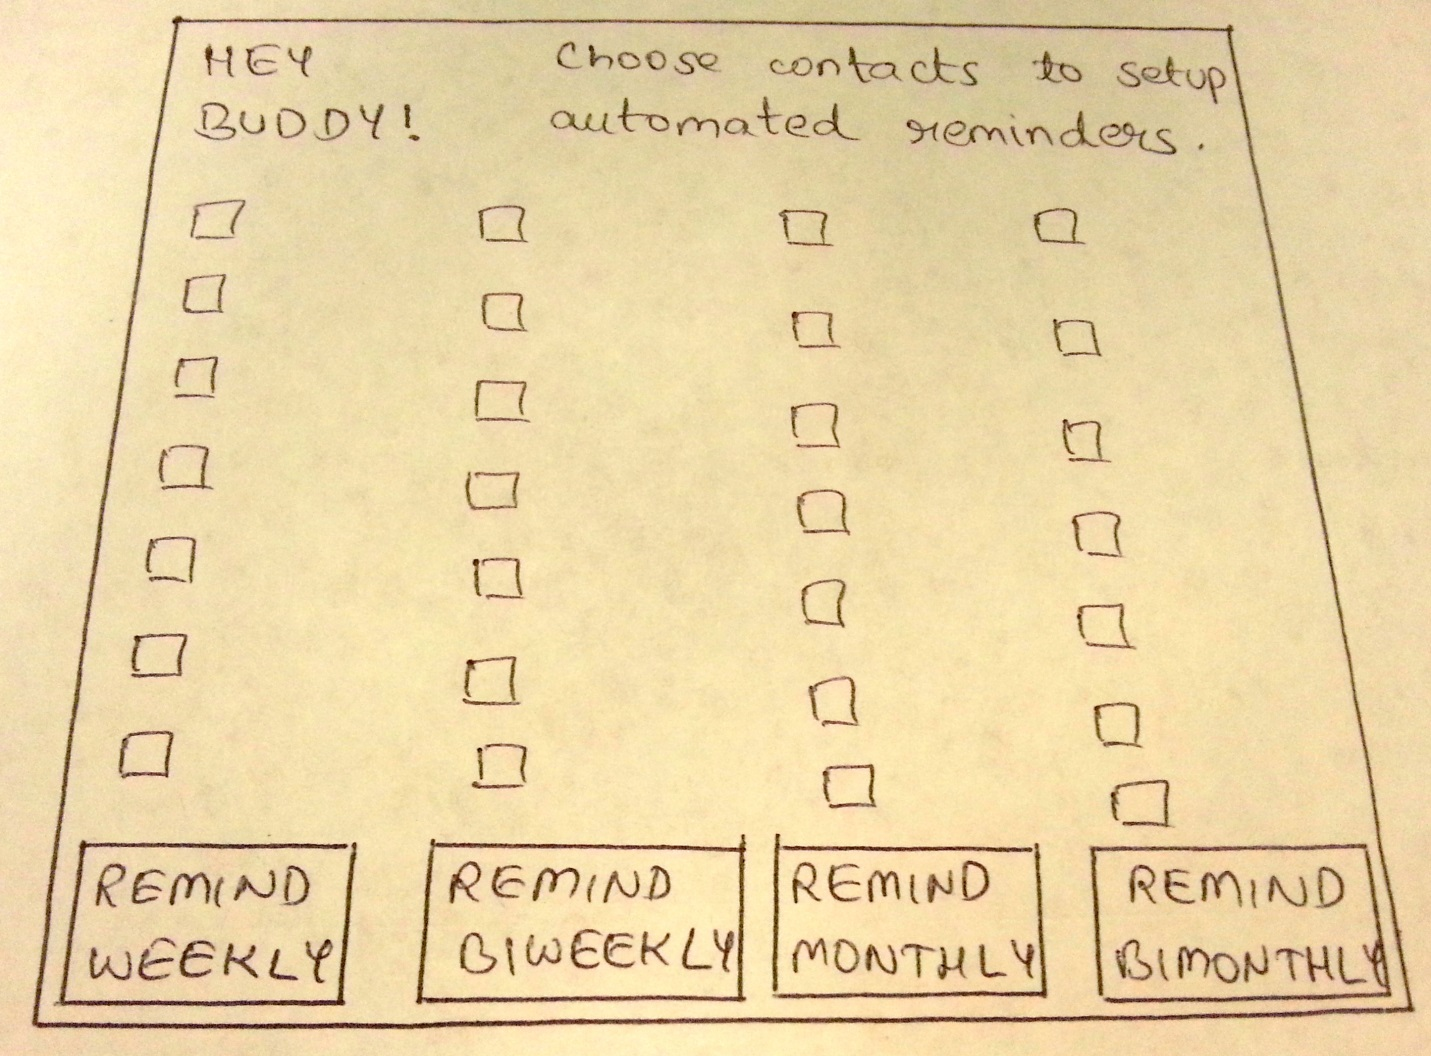 HEY
BUDDY!
Choose contacts to setup
automated reminders.
REMIND
WEEKLY
REMIND
BIWEEKLY
REMIND
MONTHLY
REMIND
BIMONTHLY